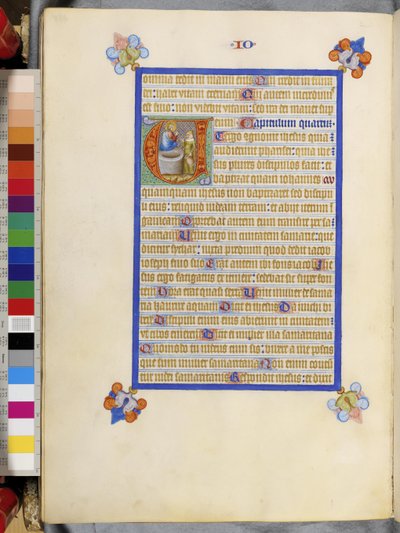 IO
omnia dedit in manu eius Qui credit in filiu
dei: habet vitam eternam Qui autem incredulus
est filio: non videbit vitam: sed ira dei manet sup
Capitulum quartum
Ut ergo cognovit ihesus quia
audierunt pharisei: quia ihe
sus plures discipulos facit: et
baptizat quam iohannes
quamquam ihesus non baptizaret sed discipu
li eius: reliquid iudeam terram: et abijt iterum
galileam Oportebat autem eum transire per sa
mariam Venit ergo in civitatem samarie: que
dicitur sychar: iuxta predium quod dedit iacob
ioseph filio suo Erat autem ibi fons iacob Ihe
sus ergo fatigatus ex itinere: sedebat sic super fon
tem Hora erat quasi sexta Venit mulier de sama
ria haurire aquam Dicit ei ihesus Da michi bi
bere Discipuli enim eius abierant in civitatem
ut cibos emerent Dicit ei mulier illa samaritana
Quomodo tu iudeus cum sis: bibere a me poscis
que sum mulier samaritana Non enim coutun
tur iudei samaritanis Respondit ihesus: et dixit